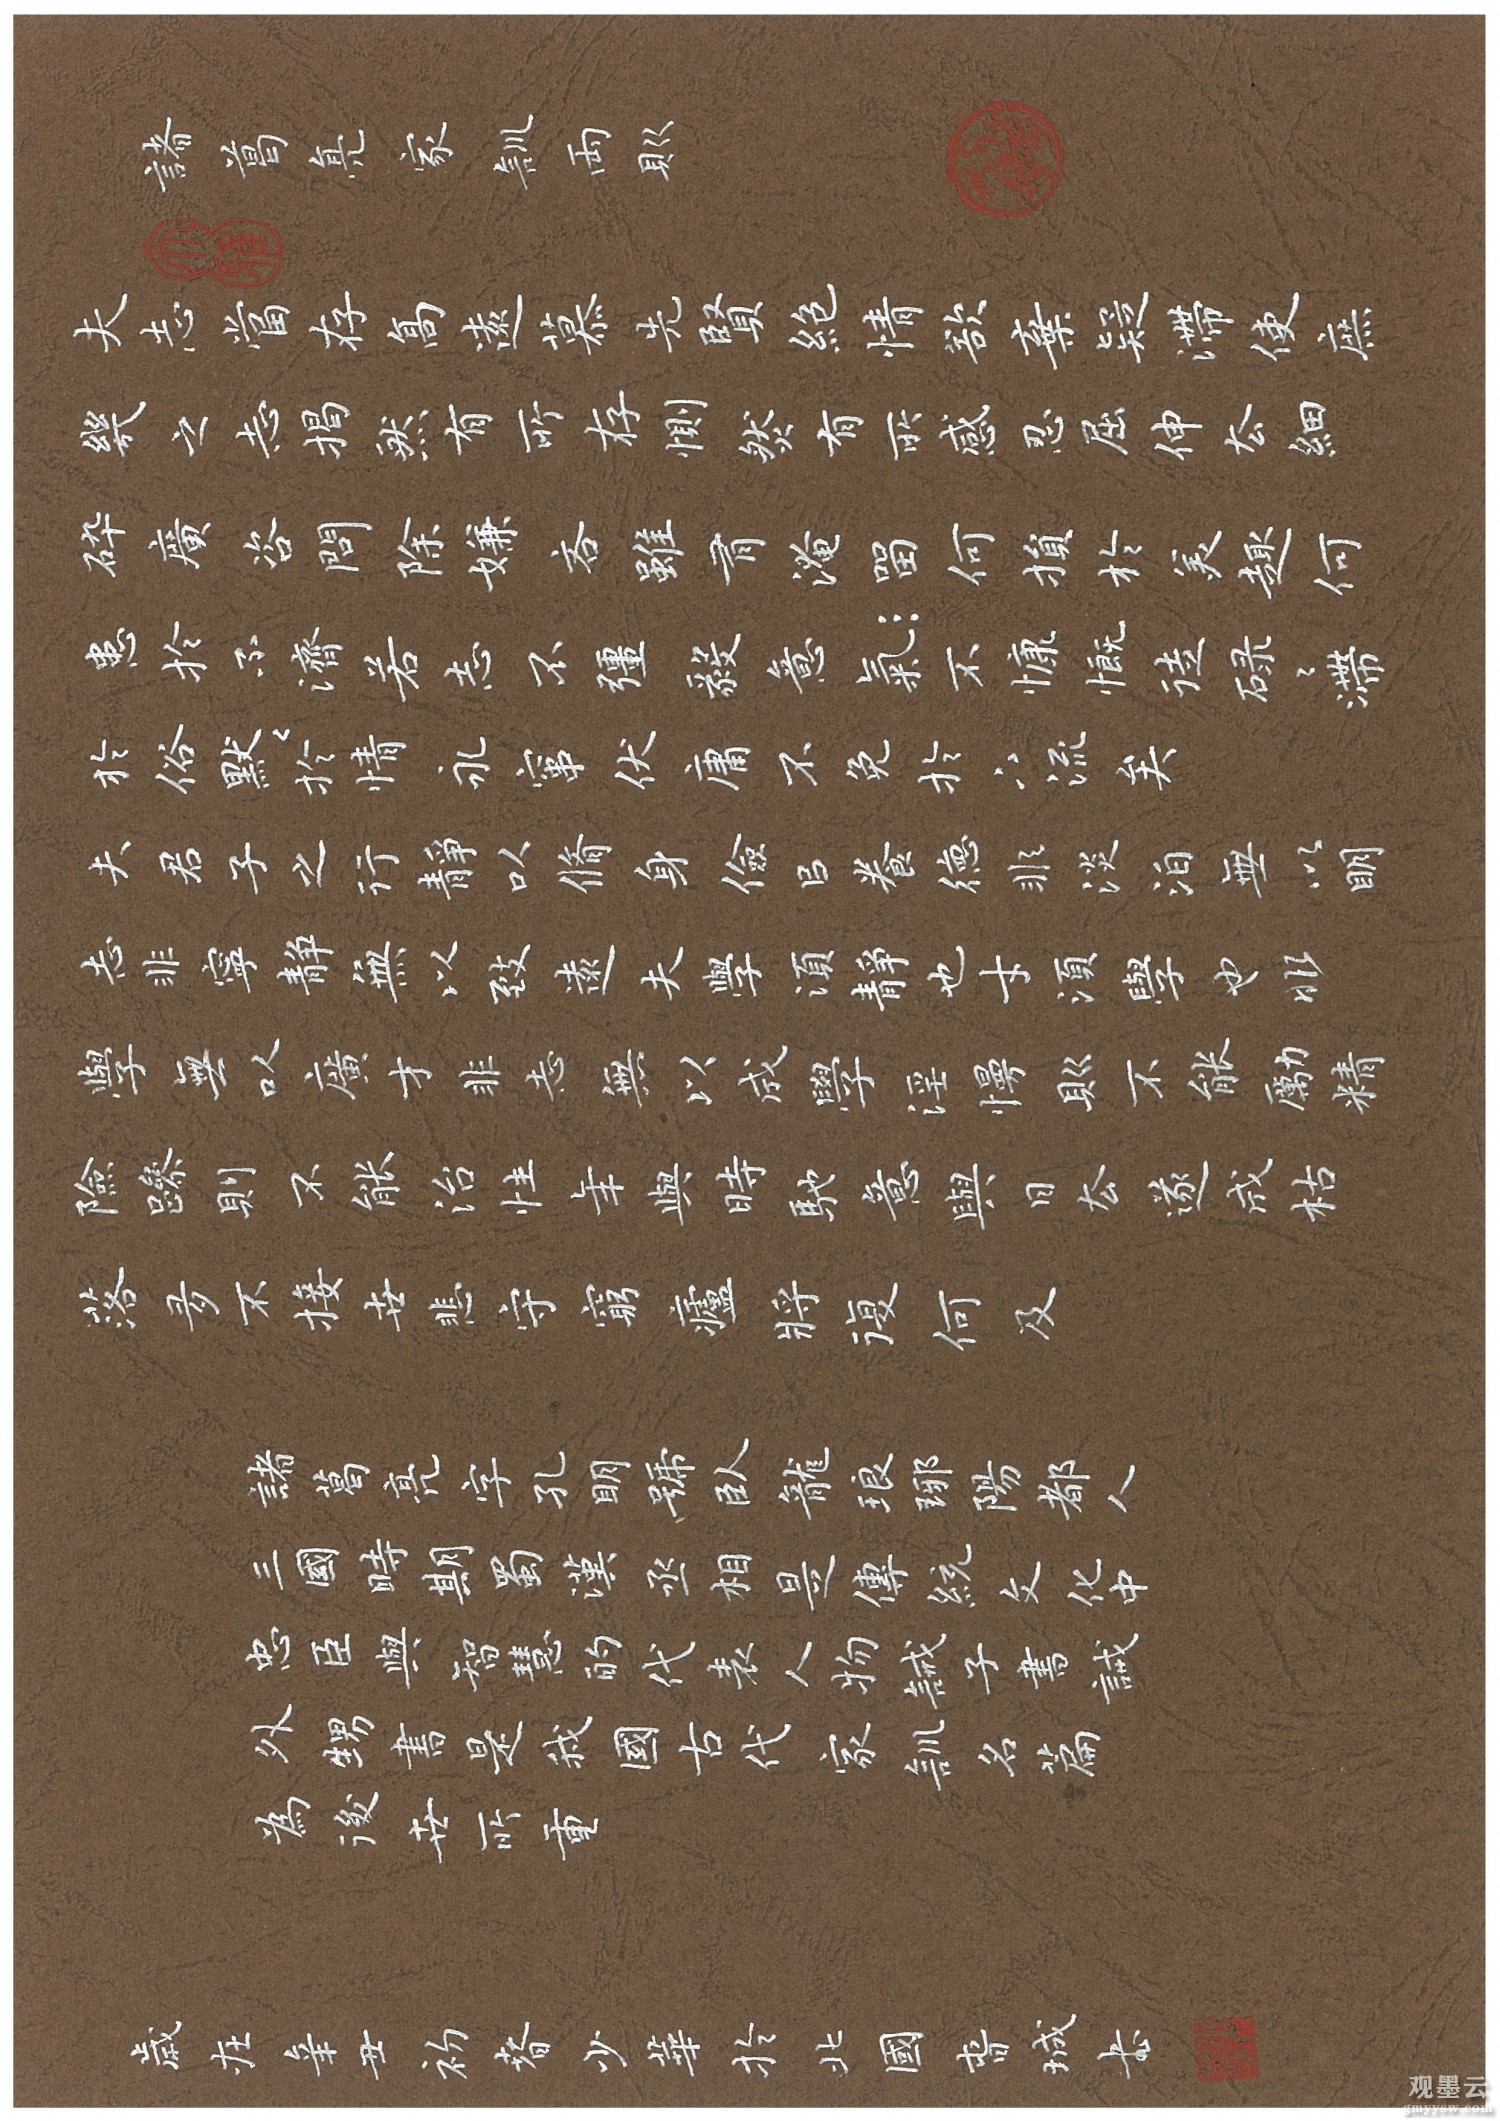 諸葛亮家訓兩則
夫志當存高遠慕先賢絕情欲棄疑滯使庶
幾之志揭然有所存惻然有所感忍屈伸去細
碎廣咨問除嫌吝雖有淹留何損於美趣何
患於不濟若志不彊毅意氣不慷慨徒碌〻滯
於俗默〻於情永竄伏庸不免於下流矣
夫君子之行靜以脩身儉以養德非淡泊無以明
志非寧靜無以致遠夫學須靜也才須學也非
學無以廣才非志無以成學淫慢則不能勵精
險躁則不能治性年與時馳意與日去遂成枯
落多不接世悲守窮廬將復何及
諸葛亮字孔明號臥龍琅琊陽都人
三國時期蜀漢丞相是傳統文化中
忠臣與智慧的代表人物誡子書誡
外甥書是我國古代家訓名篇
為後世所重
歲在辛丑初春少華於北國書城書
观墨云
gmyysw.com